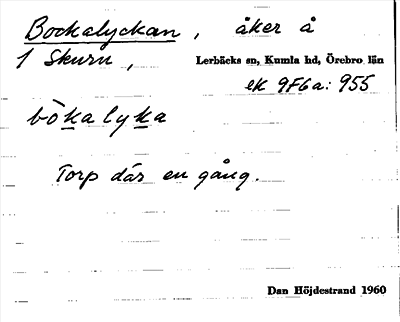 Bockalyckan, åker å
1 Skuru,
Lerbäcks sn, Kumla hd, Örebro län
ek 9F6a: 955
bòkalyka
Torp där en gång.
Dan Höjdestrand 1960